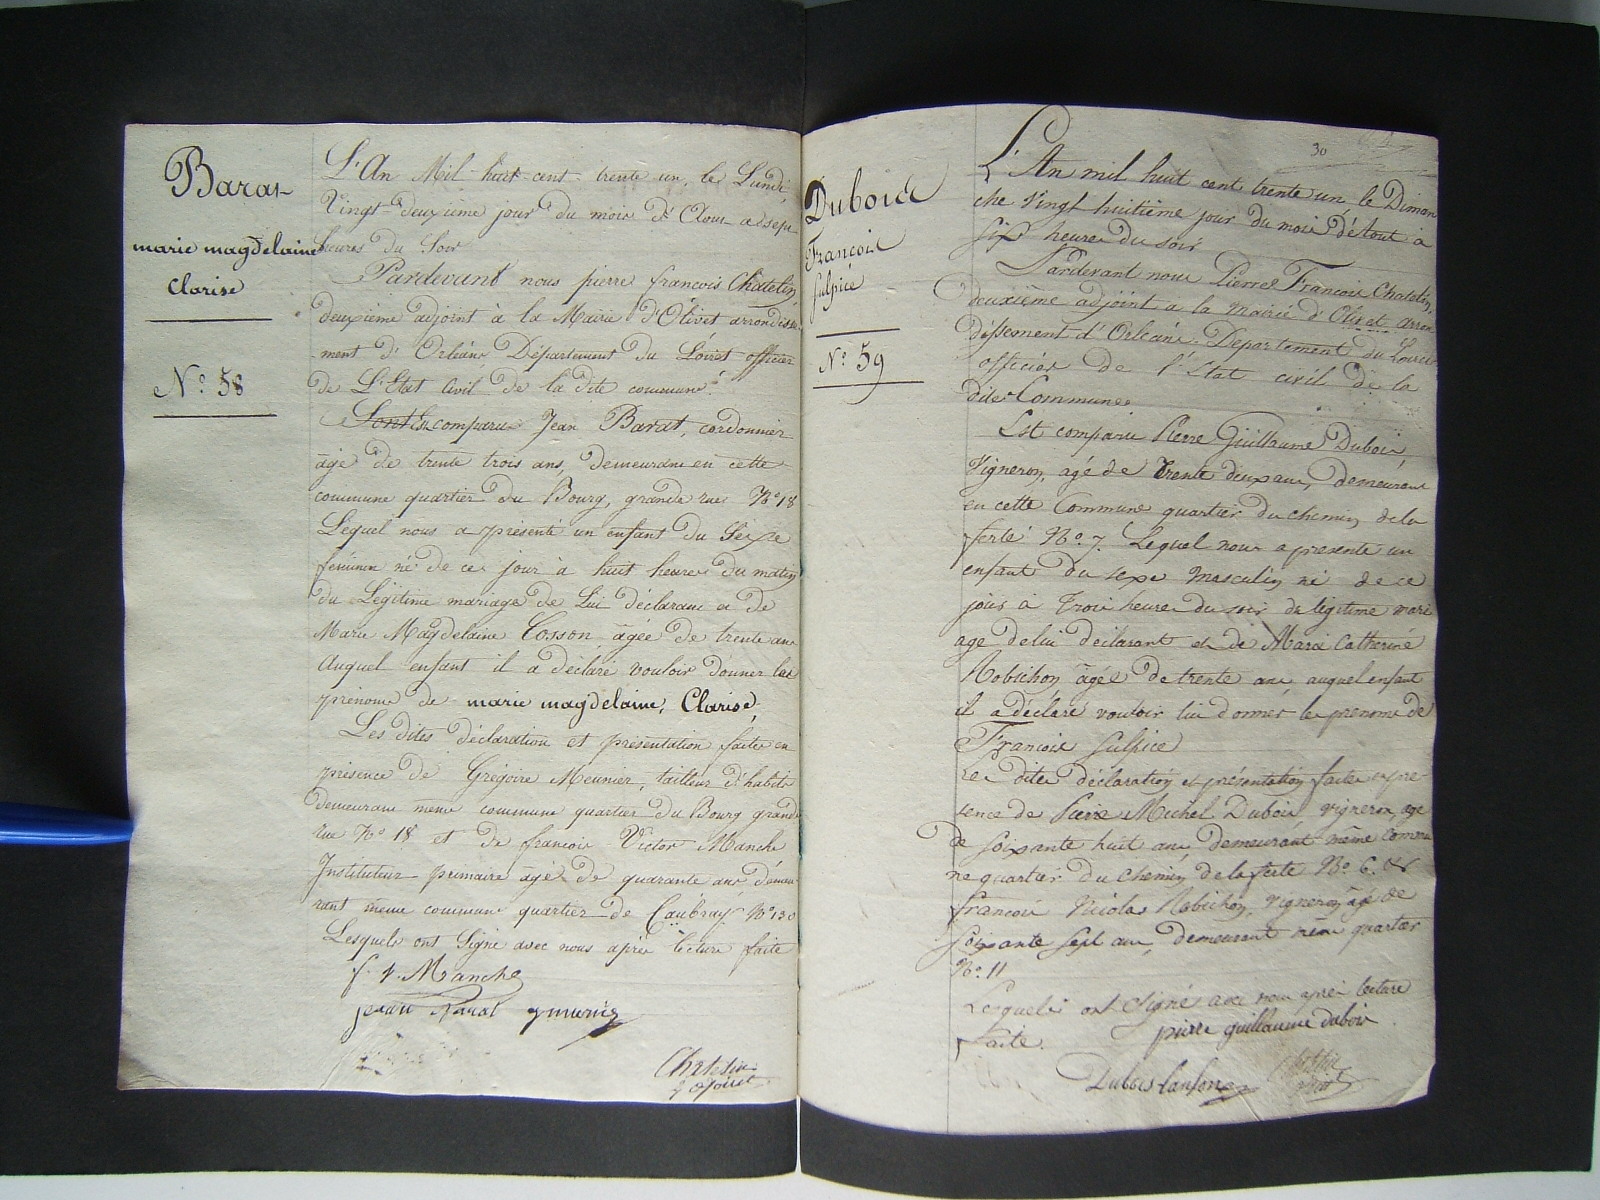 Barat
marie magdelaine
Clarise
N° 58
L'An Mil huit cent trente un, le Lundi
Vingt deuxième jour du mois d'Aout à sept
heures du Soir
Pardevant nous pierre francois Chatelin
deuxième adjoint à la Mairie d'Olivet arrondisse-
ment d'Orléans Département du Loiret officier
de L'Etat Civil de la dite commune.
Est comparu Jean Barat, cordonnier
âgé de trente trois ans, demeurant en cette
commune quartier du Bourg, grande rue N° 18
Lequel nous a présenté un enfant du Sexe
féminin né de ce jour à huit heures du matin
du Légitime mariage de Lui déclarant et de
Marie Magdelaine Cosson âgée de trente ans
Auquel enfant il a déclaré vouloir donner les
prénoms de marie magdelaine, Clarise,
Les dites déclaration et présentation faites en
présence de Grégoire Meunier, tailleur d'habits
demeurant même commune quartier du Bourg grande
rue N° 18 et de francois Victor Manche
Instituteur primaire âgé de quarante ans demeu-
rant même commune quartier de Caubray N° 130
Lesquels ont Signé avec nous après lecture faite
f. v. Manche
jean Barat gmunier
Chatelin
adjoint
30
Dubois
Francois
sulpice
N° 59
L'An mil huit cent trente un le Diman
che vingt huitième jour du mois d'Aout à
six heures du soir
Pardevant nous Pierre Francois Chatelin,
deuxième adjoint a la mairie d'Olivet arron
dissement d'Orléans. Departement du Loiret
officier de l'état civil de la
dite Commune.
Est comparu Pierre Guillaume Dubois,
Vigneron, agé de trente deux ans, demeurant
en cette Commune quartier du chemin de la
ferté N° 7. Lequel nous a presenté un
enfant du sexe masculin né de ce
jour à trois heures du soir du légitime mari
age de lui déclarant et de Marie Catherine
Robichon âgée de trente ans auquel enfant
il a déclaré vouloir lui donner les prenoms de
Francois Sulpice
Les dites déclaration et présentation faites en pré-
sence de Pierre Michel Dubois vigneron, agé
de soixante huit ans demeurant même Commu
ne quartier du chemin de la ferté N° 6. &
francois Nicolas Robichon, vigneron âgé de
soixante sept ans, demeurant même quartier
N° 11
Lesquels ont signé avec nous après lecture
faite. pierre guillaume dubois
Dubois
Chatelin